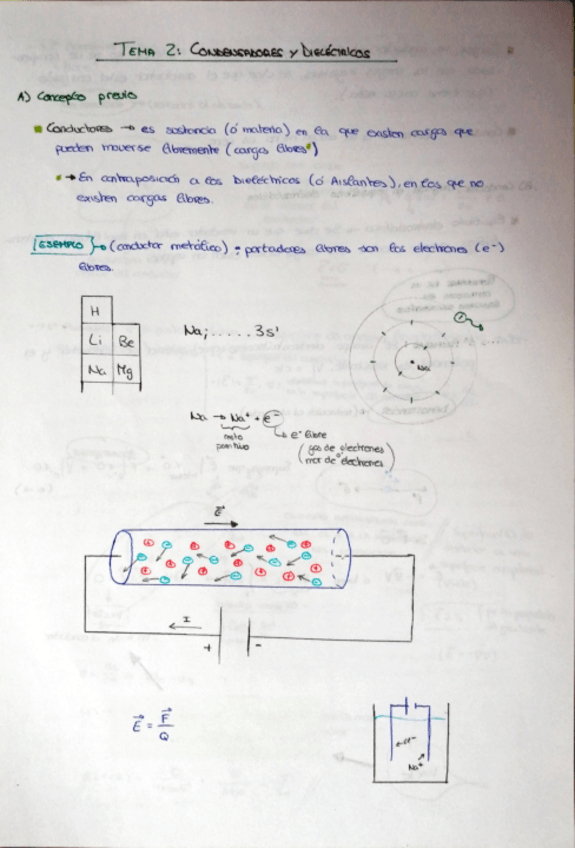 TEMA 2: CONDENSADORES Y DIELÉCTRICOS
A) Concepto previo
Conductores → es sustancia (ó materia) en la que existen cargas que
pueden moverse libremente (cargas libres)
→ En contraposición a los Dieléctricos (ó Aislantes), en los que no
existen cargas libres.
EJEMPLO → (conductor metálico) : portadores libres son los electrones (e-)
libres.
H
Li Be
Na Mg
Na; ..... 3s¹
Na
Na → Na⁺ + e⁻
positivo
e⁻ libre
(gas de electrones
mar de electrones)
E⃗
I
+ -
E⃗ = F⃗/Q
Cl⁻
Na⁺